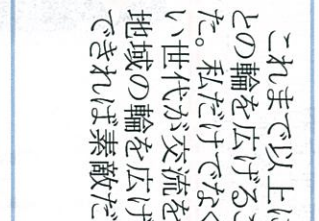 これまで以上に
との輪を広げる
た。私だけでなく
い世代が交流を
地域の輪を広げ
できれば素敵だ